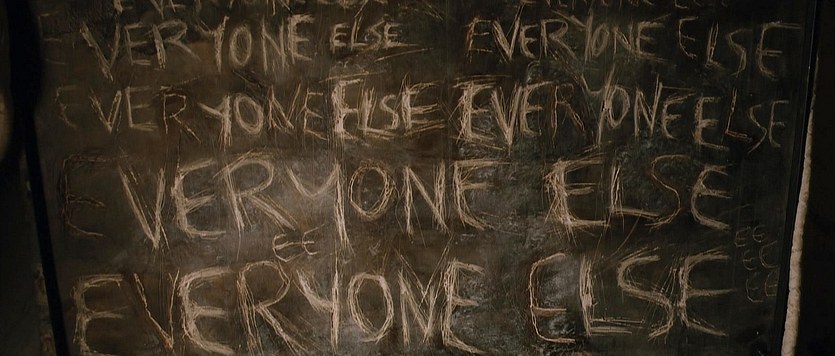 EVERYONE ELSE EVERYONE ELSE
EVERYONE ELSE EVERYONE ELSE
EVERYONE ELSE
EE
EVERYONE ELSE